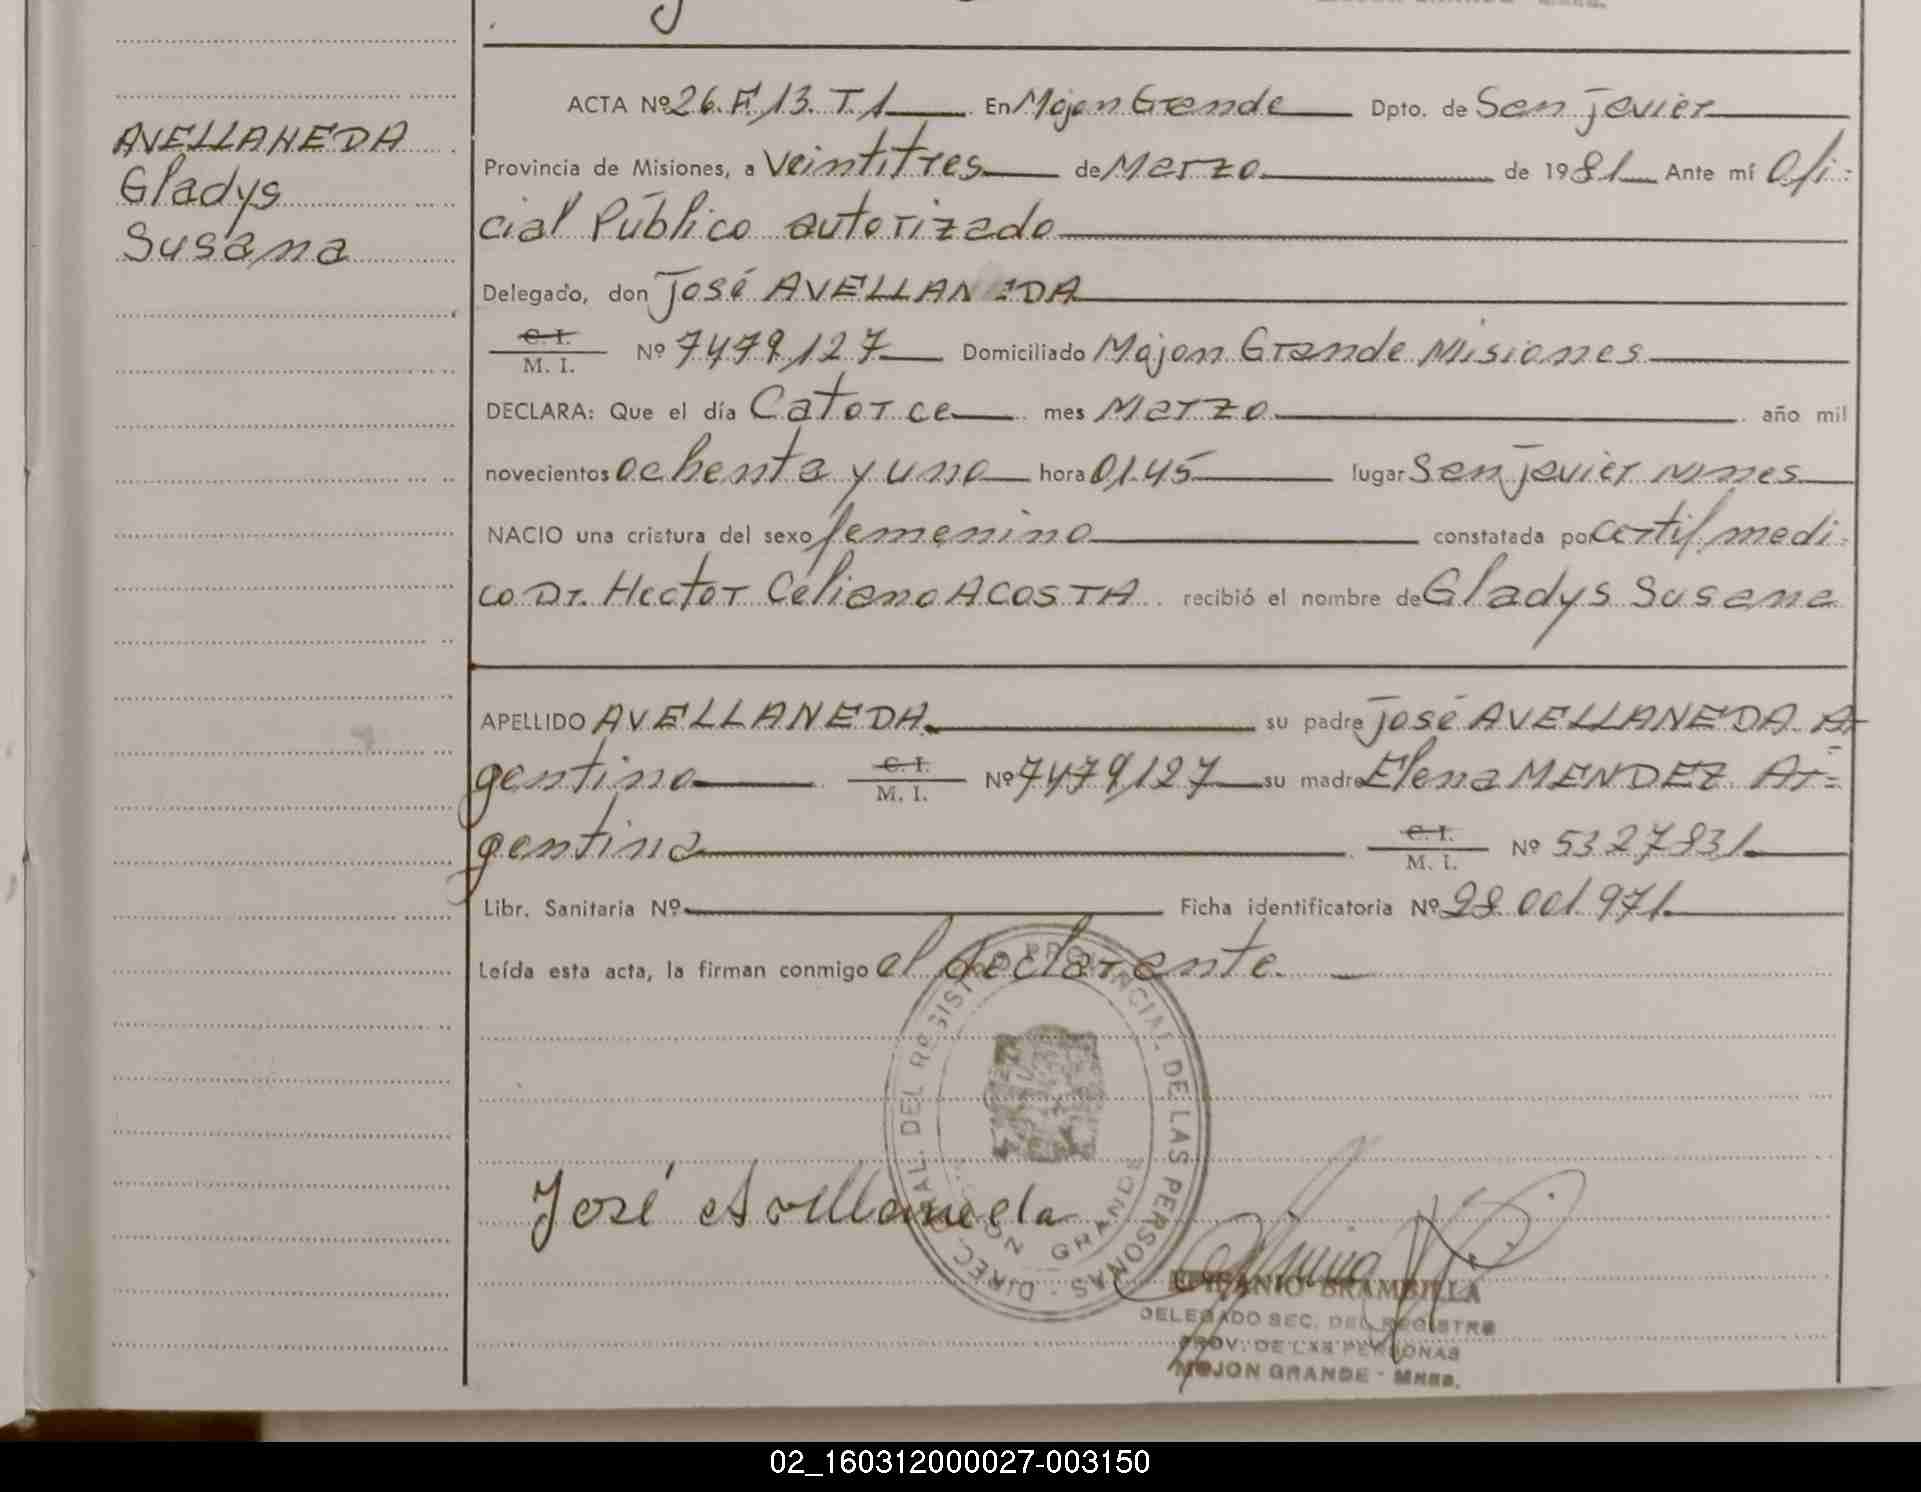 AVELLANEDA
Gladys
Susana
ACTA Nº 26. F. 13. T. 1 En Mojon Grande Dpto. de San Javier
Provincia de Misiones, a Veintitres de Marzo de 1981 Ante mí Ofi-
cial Público autorizado
Delegado, don José AVELLANEDA
C. I.
M. I. Nº 7479127 Domiciliado Mojon Grande Misiones
DECLARA: Que el día Catorce mes Marzo año mil
novecientos ochenta y uno hora 01.45 lugar San Javier Mnes
NACIO una criatura del sexo femenino constatada por certif. medi-
co Dr. Hector Celiano ACOSTA recibió el nombre de Gladys Susana
APELLIDO AVELLANEDA su padre José AVELLANEDA Ar-
gentino C. I. M. I. Nº 7479127 su madre Elena MENDEZ Ar-
gentina C. I. M. I. Nº 5327831
Libr. Sanitaria Nº Ficha identificatoria Nº 28.001.971
Leída esta acta, la firman conmigo el declarante.
DIREC. GRAL. DEL REGISTRO PROVINCIAL DE LAS PERSONAS
MOJON GRANDE
José Avellaneda
EPIFANIO BRAMBILLA
DELEGADO SEC. DEL REGISTRO
PROV. DE LAS PERSONAS
MOJON GRANDE - Mnes.
02_160312000027-003150